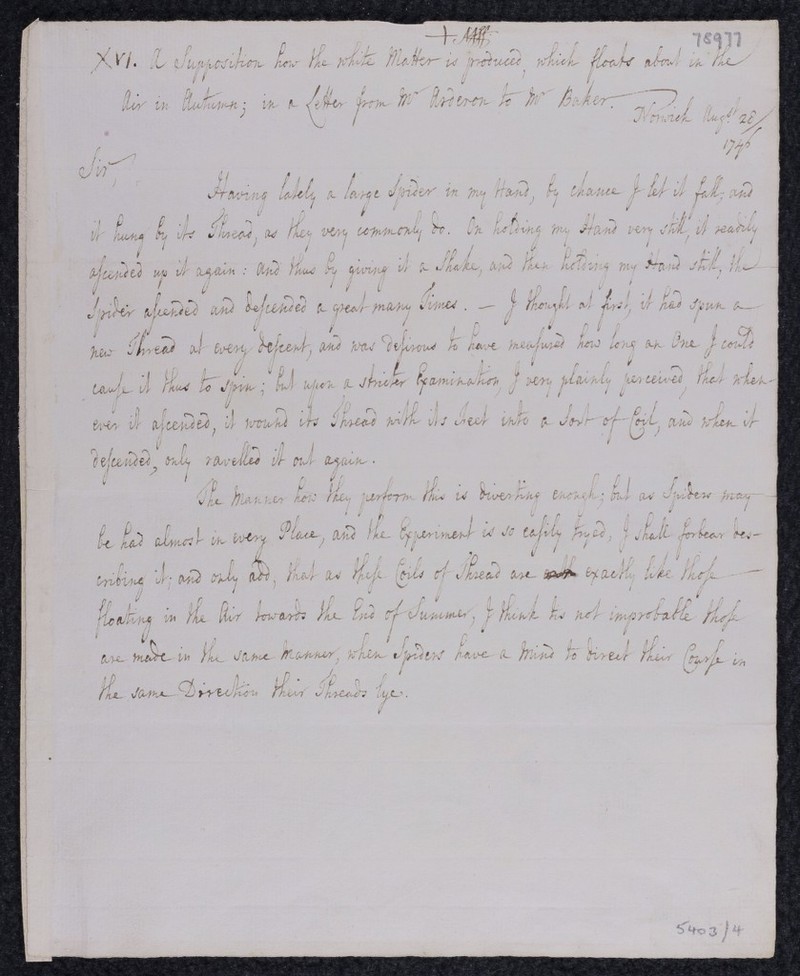 78977
XVI. A Supposition how the white Matter is produced, which floats about in the
Air in Autumn; in a Letter from Mr Arderon to Mr Baker.
Norwich Augst 28
1746
Sir,
Having lately a large Spider in my Hand, by chance I let it fall, and
it hung by its Thread, as they very commonly do. On holding my Hand very still, it readily
ascended up it again: and thus by giving it a Shake, and then holding my Hand still, the
Spider ascended and descended a great many Times. — I thought at first, it had spun a
new Thread at every descent, and was desirous to have measured how long an One I could
cause it thus to spin; but upon a stricter Examination, I very plainly perceived, that when-
ever it ascended, it wound its Thread with its Feet into a Sort of Coil, and when it
descended, only ravelled it out again.
The Manner how they perform this is diverting enough; but as Spiders may
be had almost in every Place, and the Experiment is so easily tryed, I shall forbear des-
cribing it; and only add, that as these Coils of Thread are exactly like those
floating in the Air towards the End of Summer, I think tis not improbable those
are made in the same Manner, when Spiders have a Mind to direct their Course in
the same Direction their Threads lye.
5403/4